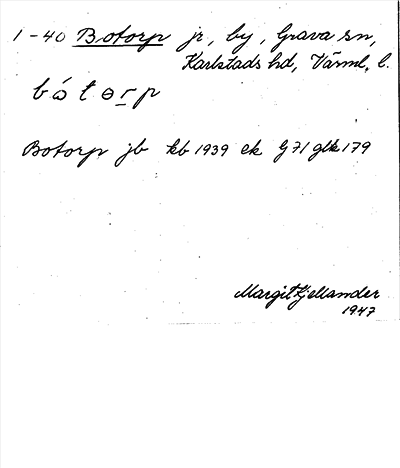 1-40 Botorp jr, by, Grava sn,
Karlstads hd, Värml. l.
bó̀tɵrp
Botorp jb kb 1939 ek G71 glk 179
Margit Kjellander
1947